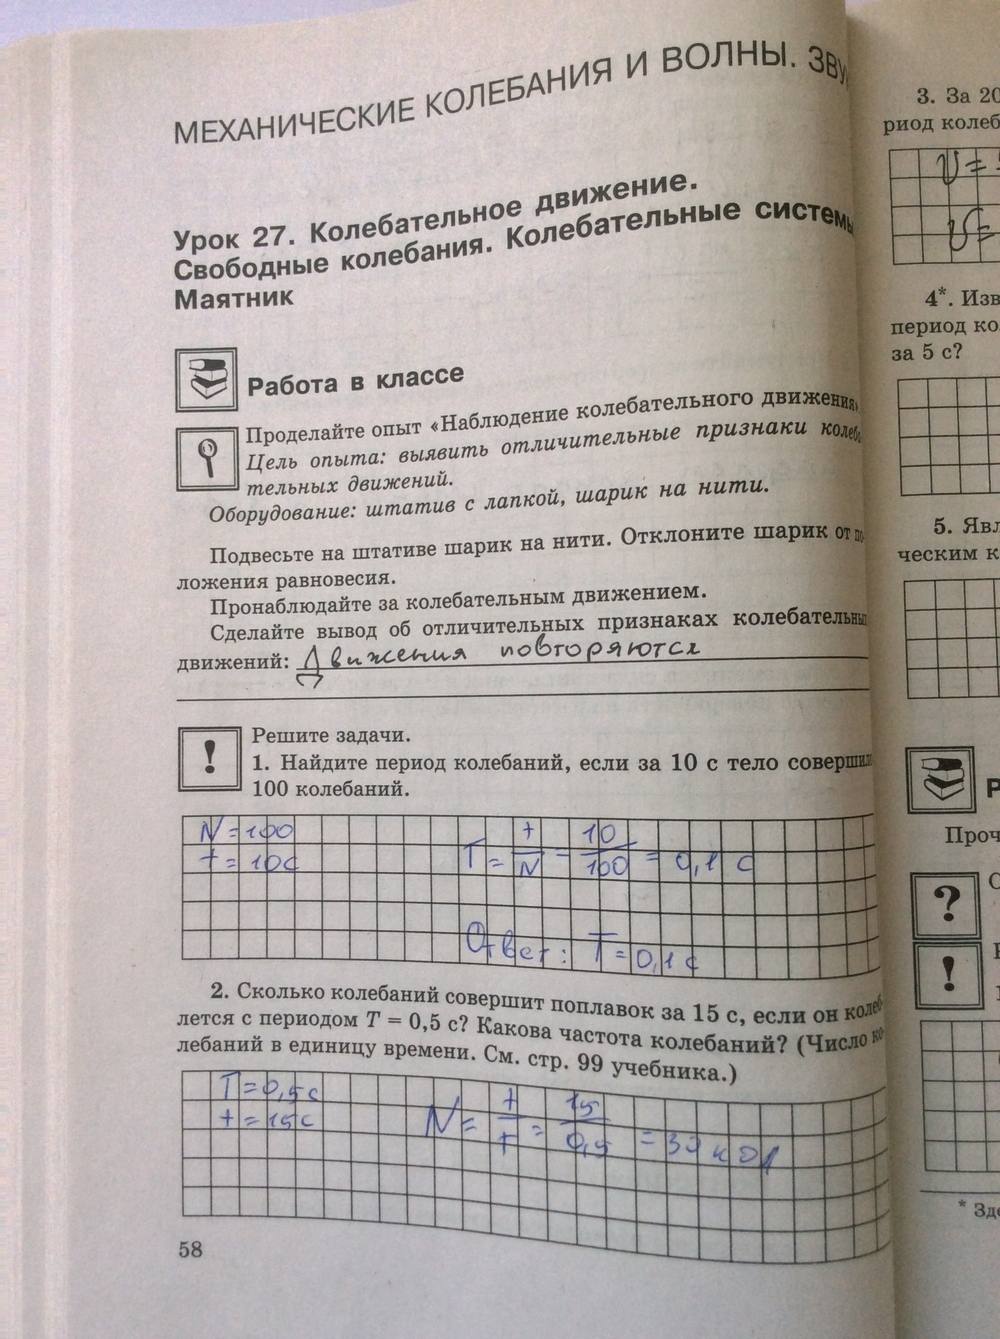 МЕХАНИЧЕСКИЕ КОЛЕБАНИЯ И ВОЛНЫ. ЗВУ
Урок 27. Колебательное движение.
Свободные колебания. Колебательные системы
Маятник
Работа в классе
Проделайте опыт «Наблюдение колебательного движения».
Цель опыта: выявить отличительные признаки колеба-
тельных движений.
Оборудование: штатив с лапкой, шарик на нити.
Подвесьте на штативе шарик на нити. Отклоните шарик от по-
ложения равновесия.
Пронаблюдайте за колебательным движением.
Сделайте вывод об отличительных признаках колебательных
движений: Движения повторяются
!
Решите задачи.
1. Найдите период колебаний, если за 10 с тело совершило
100 колебаний.
N = 100
t = 10с
T = t/N = 10/100 = 0,1 с
Ответ: T = 0,1 с
2. Сколько колебаний совершит поплавок за 15 с, если он колеб-
лется с периодом T = 0,5 с? Какова частота колебаний? (Число ко-
лебаний в единицу времени. См. стр. 99 учебника.)
T = 0,5 с
t = 15 с
N = t/т = 15/0,5 = кол
58
3. За 20
риод колеб
V =
V =
4*. Изв
период ко
за 5 с?
5. Явл
ческим к
Р
Проч
?
!
* Зде